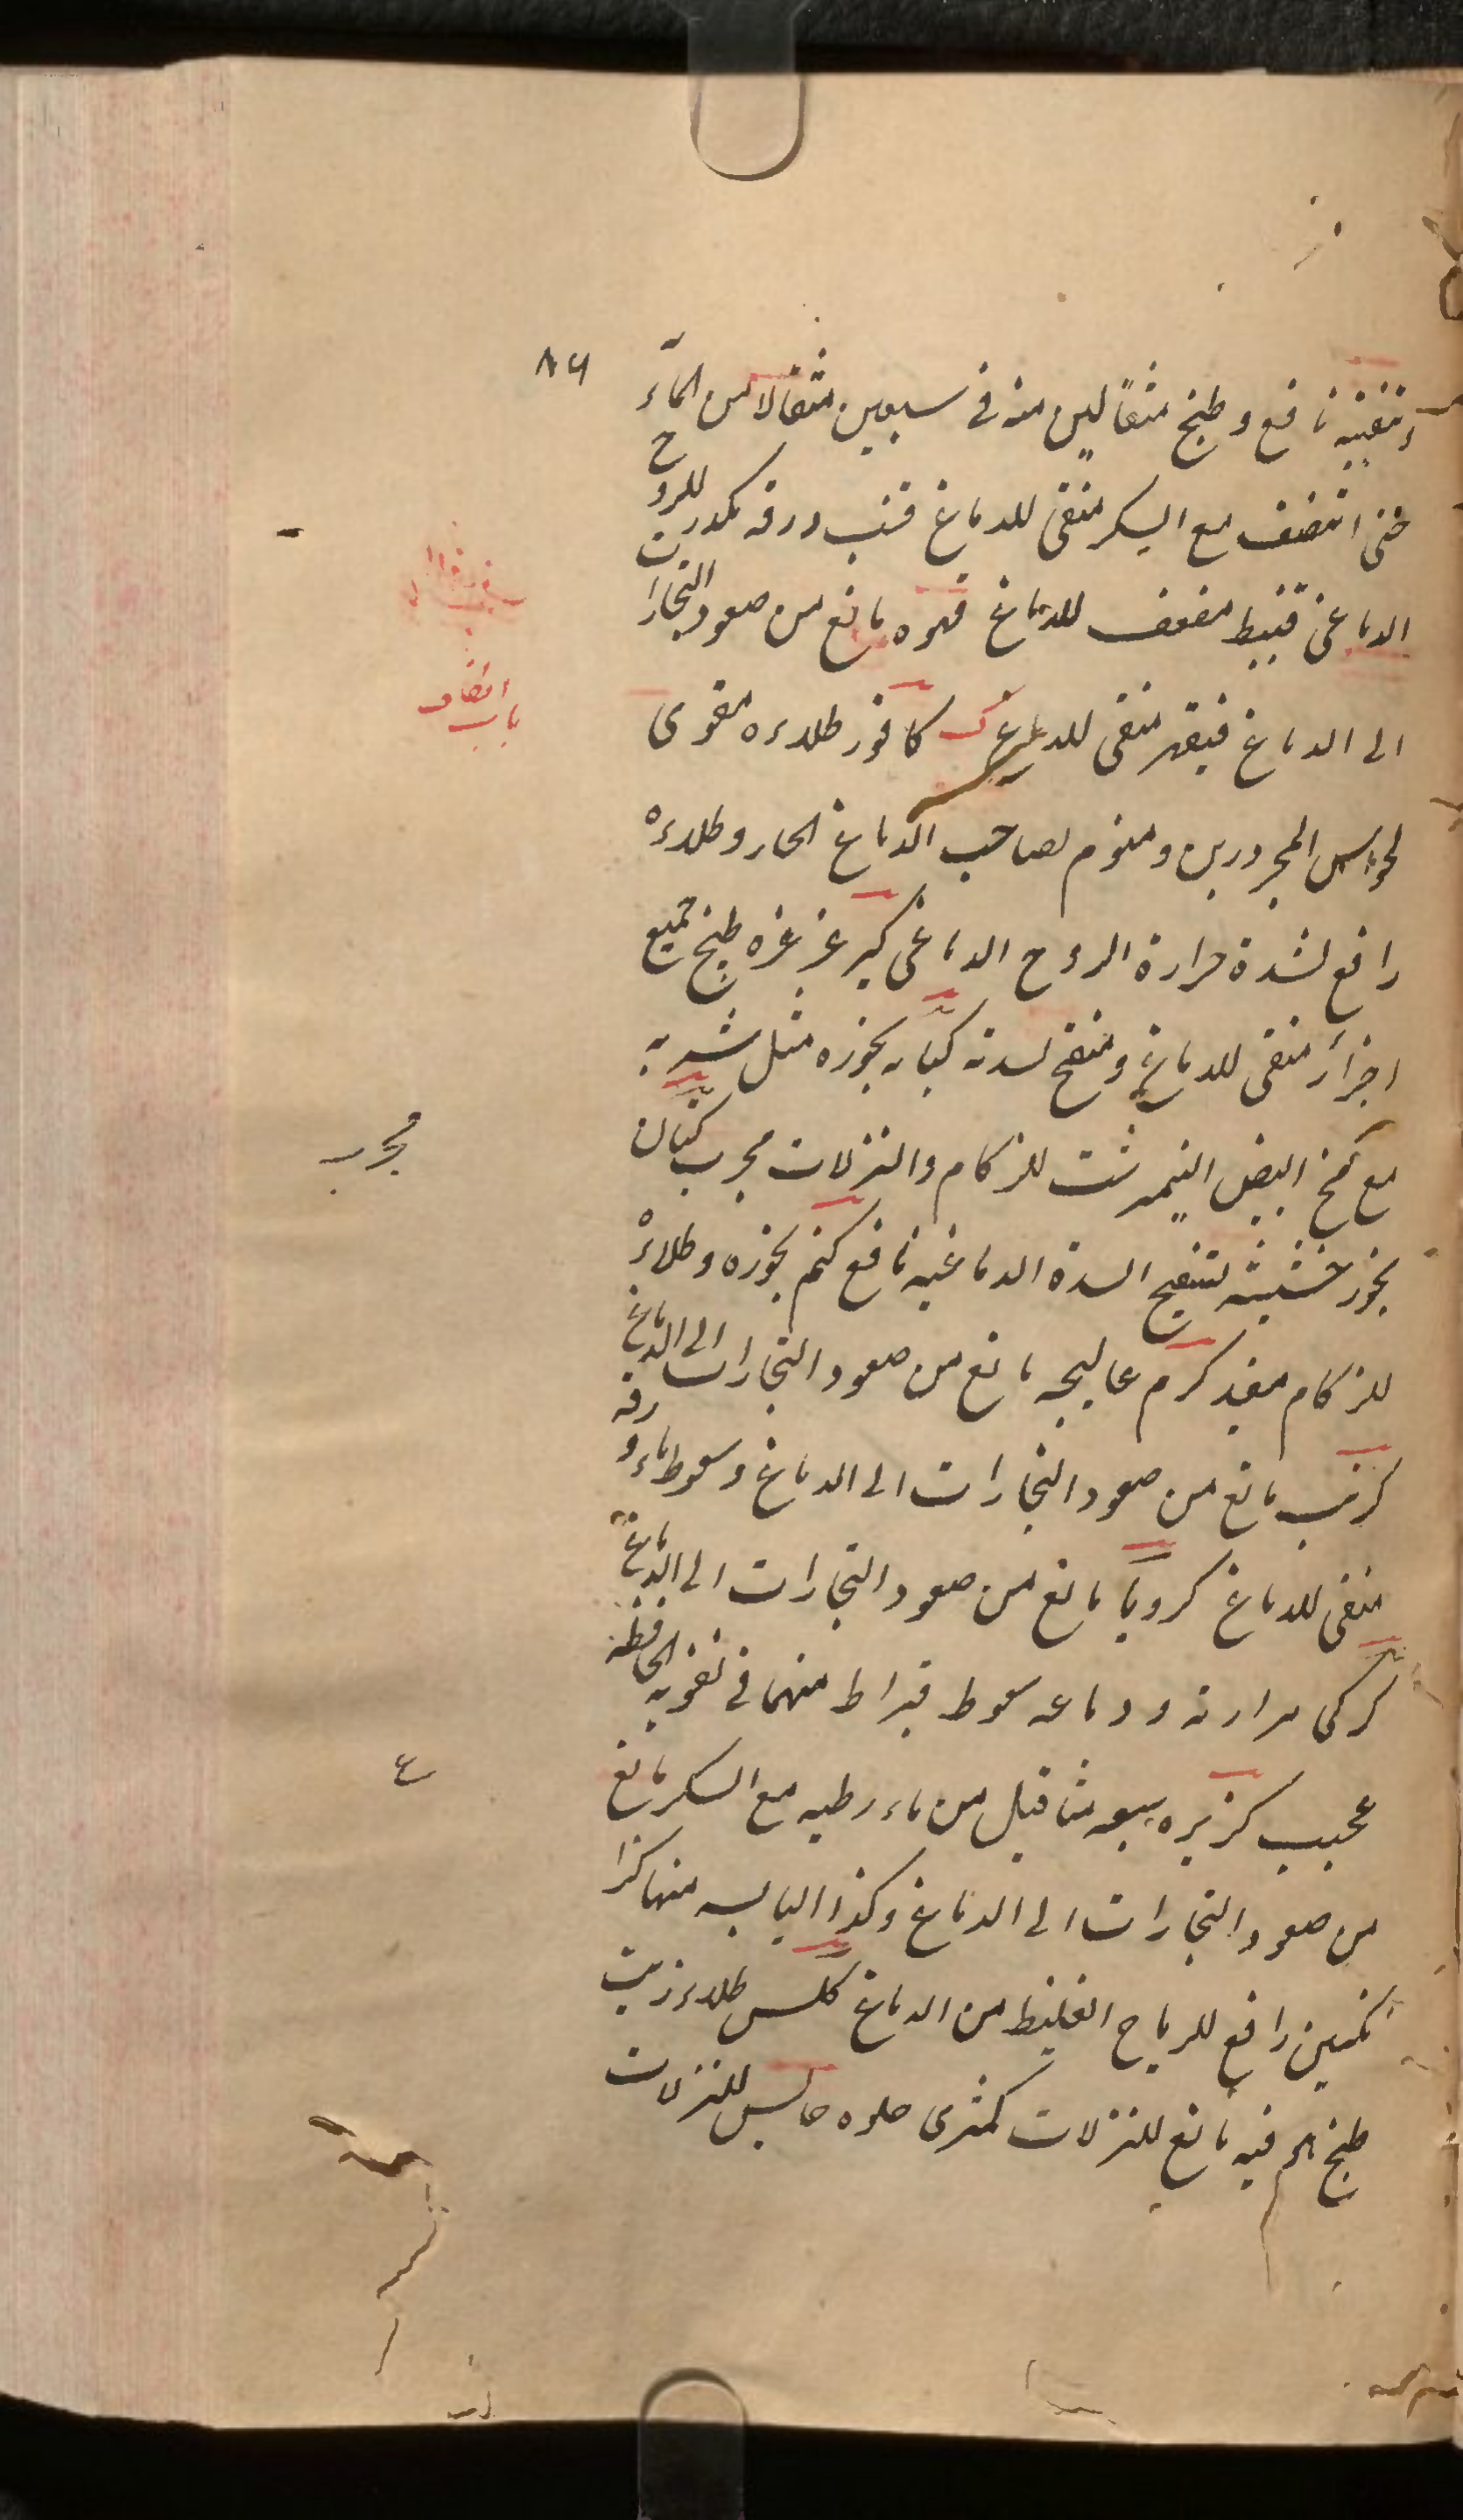 ٨٦
و تنقيه نافع و طبخ مثقالين منه فى سبعين مثقالا من المآء
حتى انتصف مع السكر منقى للدماغ قنب ورقه مكدر للروح
الدماغى قنبيط مضعف للدماغ قهوه مانع من صعود البخارات
الى الدماغ فيقهر منقى للدماغ ك كافور طلاءه مقوى
باب الكاف
لحواس المحرورين و منوم لصاحب الدماغ الحار و طلاءه
رافع لشدة حرارة الروح الدماغى كبر غرغره طبخ جميع
اجزائه منقى للدماغ و مفتح لسدته كبابه بخوره مثل شربه
مع مخ البيض النيمرشت للزكام والنزلات مجرب كتان
مجرب
بخور خشبه لتفتيح السدة الدماغيه نافع كتم بخوره و طلاءه
للزكام مفيد كرم عاليجه مانع من صعود البخارات الى الدماغ
كرنب مانع من صعود البخارات الى الدماغ و سعوط ماء ورقه
منقى للدماغ كرويا مانع من صعود البخارات الى الدماغ
كركى مرارته و دماغه سعوط قيراط منهما فى تقويه الحافظه
عجيب كزبره سبعه مثاقيل من ماء رطبه مع السكر مانع
ع
من صعود البخارات الى الدماغ و كذا اليابسه منها كذا
رافع للرياح الغليظ من الدماغ كلس طلاء زيت
طبخ فيه مانع للنزلات كمثرى حلوه حابس للنزلات